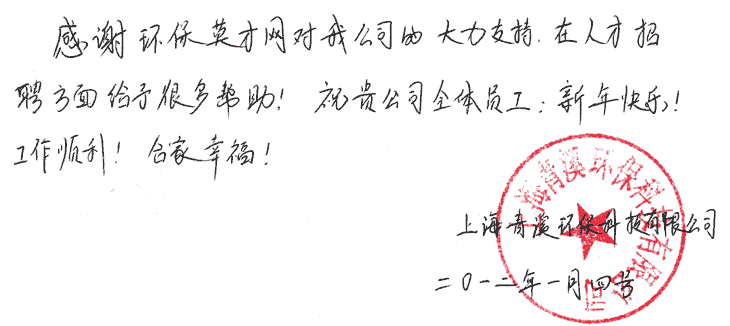 感谢环保英才网对我公司的大力支持.在人才招
聘方面给予很多帮助！祝贵公司全体员工：新年快乐！
工作顺利！合家幸福！
上海青溪环保科技有限公司
上海青溪环保科技有限公司
二0一二年一月四号